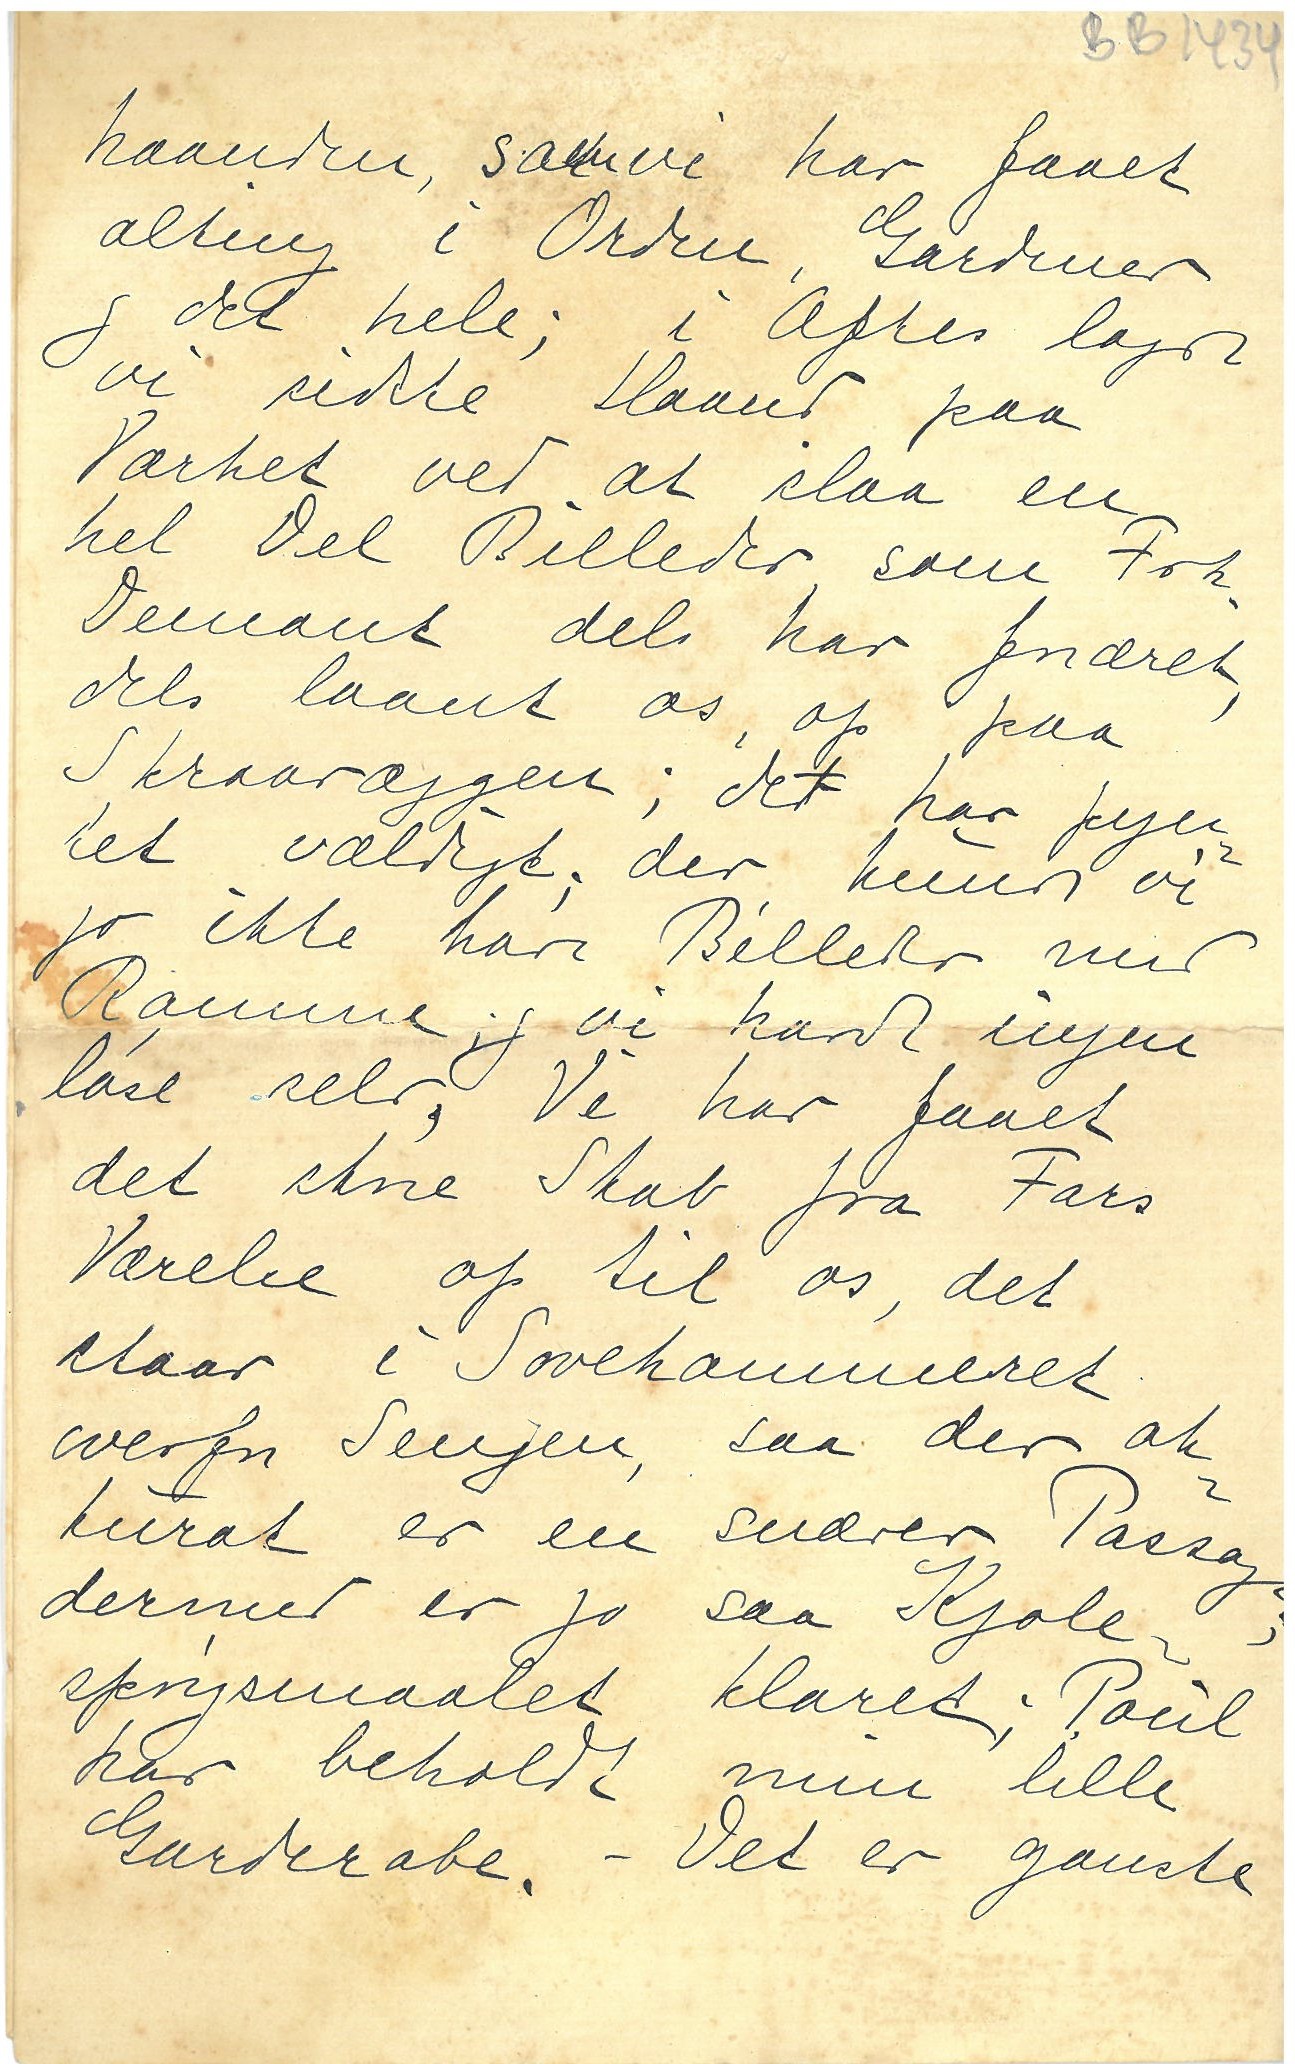 BB1434
haanden, saa vi har faaet
alting i Orden, Gardiner
og det hele; i Aftes lagde
vi sidste Haand paa
Værket ved at slaa en
hel Del Billeder, som Frk.
Demant dels har foræret,
dels laant os, op paa
Skraavæggen; det har pyn-
tet vældigt; der kunde vi
jo ikke have Billeder med
Ramme, og vi havde ingen
løse selv. Vi har faaet
det store Skab fra Fars
Værelse op til os, det
staar i Sovekammeret
overfor Sengen, saa der ak-
kurat er en snæver Passage;
dermed er jo saa Kjole-
spørgsmaalet klaret; Poul
har beholdt min lille
Garderobe. - Det er ganske